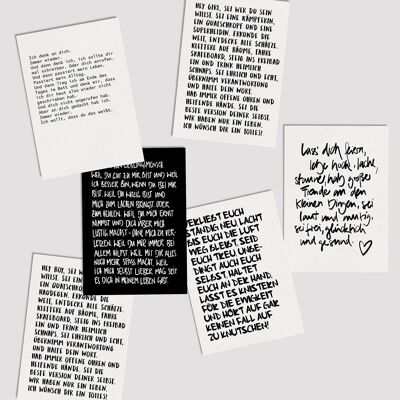 Ich denk an dich.
Immer wieder.
Und dann denk ich, ich sollte dir
mal schreiben. Oder dich anrufen.
Und dann passiert mein Leben.
Passiert mein Alltag.
Und dann lieg ich am Ende des
Tages im Bett und denk mir, dass
ich dir heut also wieder nicht
geschrieben hab.
Und dich nicht angerufen hab.
Aber an dich gedacht hab ich.
Immer wieder.
Ich wollt, dass du das weißt.
HEY GIRL, SEI WER DU SEIN
WILLST. SEI EINE KÄMPFERIN,
EIN QUATSCHKOPF UND EINE
SUPERHELDIN. ERKUNDE DIE
WELT, ENTDECKE ALLE SCHÄTZE,
KLETTERE AUF BÄUME, FAHRE
SKATEBOARD, STEIG INS FREIBAD
EIN UND TRINK HEIMLICH
SCHNAPS. SEI EHRLICH UND ECHT,
ÜBERNIMM VERANTWORTUNG
UND HALTE DEIN WORT.
HAB IMMER OFFENE OHREN UND
HELFENDE HÄNDE. SEI DIE
BESTE VERSION DEINER SELBST.
WIR HABEN NUR EIN LEBEN.
ICH WÜNSCH DIR EIN TOLLES!
LIEBLINGSMENSCH.
WEIL DU GUT BIST UND WEIL
ICH BESSER BIN, WENN DU BEI MIR
BIST. WEIL DU WEISST WIE DU
MICH ZUM LACHEN BRINGST ODER
ZUM HEULEN. WEIL DU MICH ERNST
NIMMST UND DICH ÜBER MICH
LUSTIG MACHST - OHNE MICH ZU VER-
LETZEN. WEIL DU MIR IMMER BEI
ALLEM HILFST. WEIL MIT DIR ALLES
NOCH MEHR SPASS MACHT. WEIL
ICH MICH SELBST LIEBER MAG SEIT
ES DICH IN MEINEM LEBEN GIBT.
Lass' dich feiern,
lebe hoch, lache,
staune, hab große
Freude an den
kleinen Dingen, sei
laut und mutig,
sei frei, glücklich
und gesund.
VERLIEBT EUCH
STÄNDIG NEU LACHT
BIS EUCH DIE LUFT
WEG BLEIBT. SEID
EUCH TREU. UNBE-
DINGT AUCH EUCH
SELBST. HALTET
EUCH AN DER HAND.
LASST ES KNISTERN
FÜR DIE EWIGKEIT
UND HÖRT AUF GAR
KEINEN FALL AUF
ZU KNUTSCHEN!
HEY BOY, SEI WER DU
WILLST. SEI EIN
EIN QUATSCHKOPF
HAUDEGEN. ERKUNDE DIE
WELT, ENTDECKE ALLE
KLETTERE AUF BÄUME, FAHRE
SKATEBOARD, STEIG INS FREIBAD
EIN UND TRINK HEIMLICH
SCHNAPS. SEI EHRLICH UND ECHT,
ÜBERNIMM VERANTWORTUNG
UND HALTE DEIN WORT.
HAB IMMER OFFENE OHREN UND
HELFENDE HÄNDE. SEI DIE
BESTE VERSION DEINER SELBST.
WIR HABEN NUR EIN LEBEN.
ICH WÜNSCH DIR EIN TOLLES!